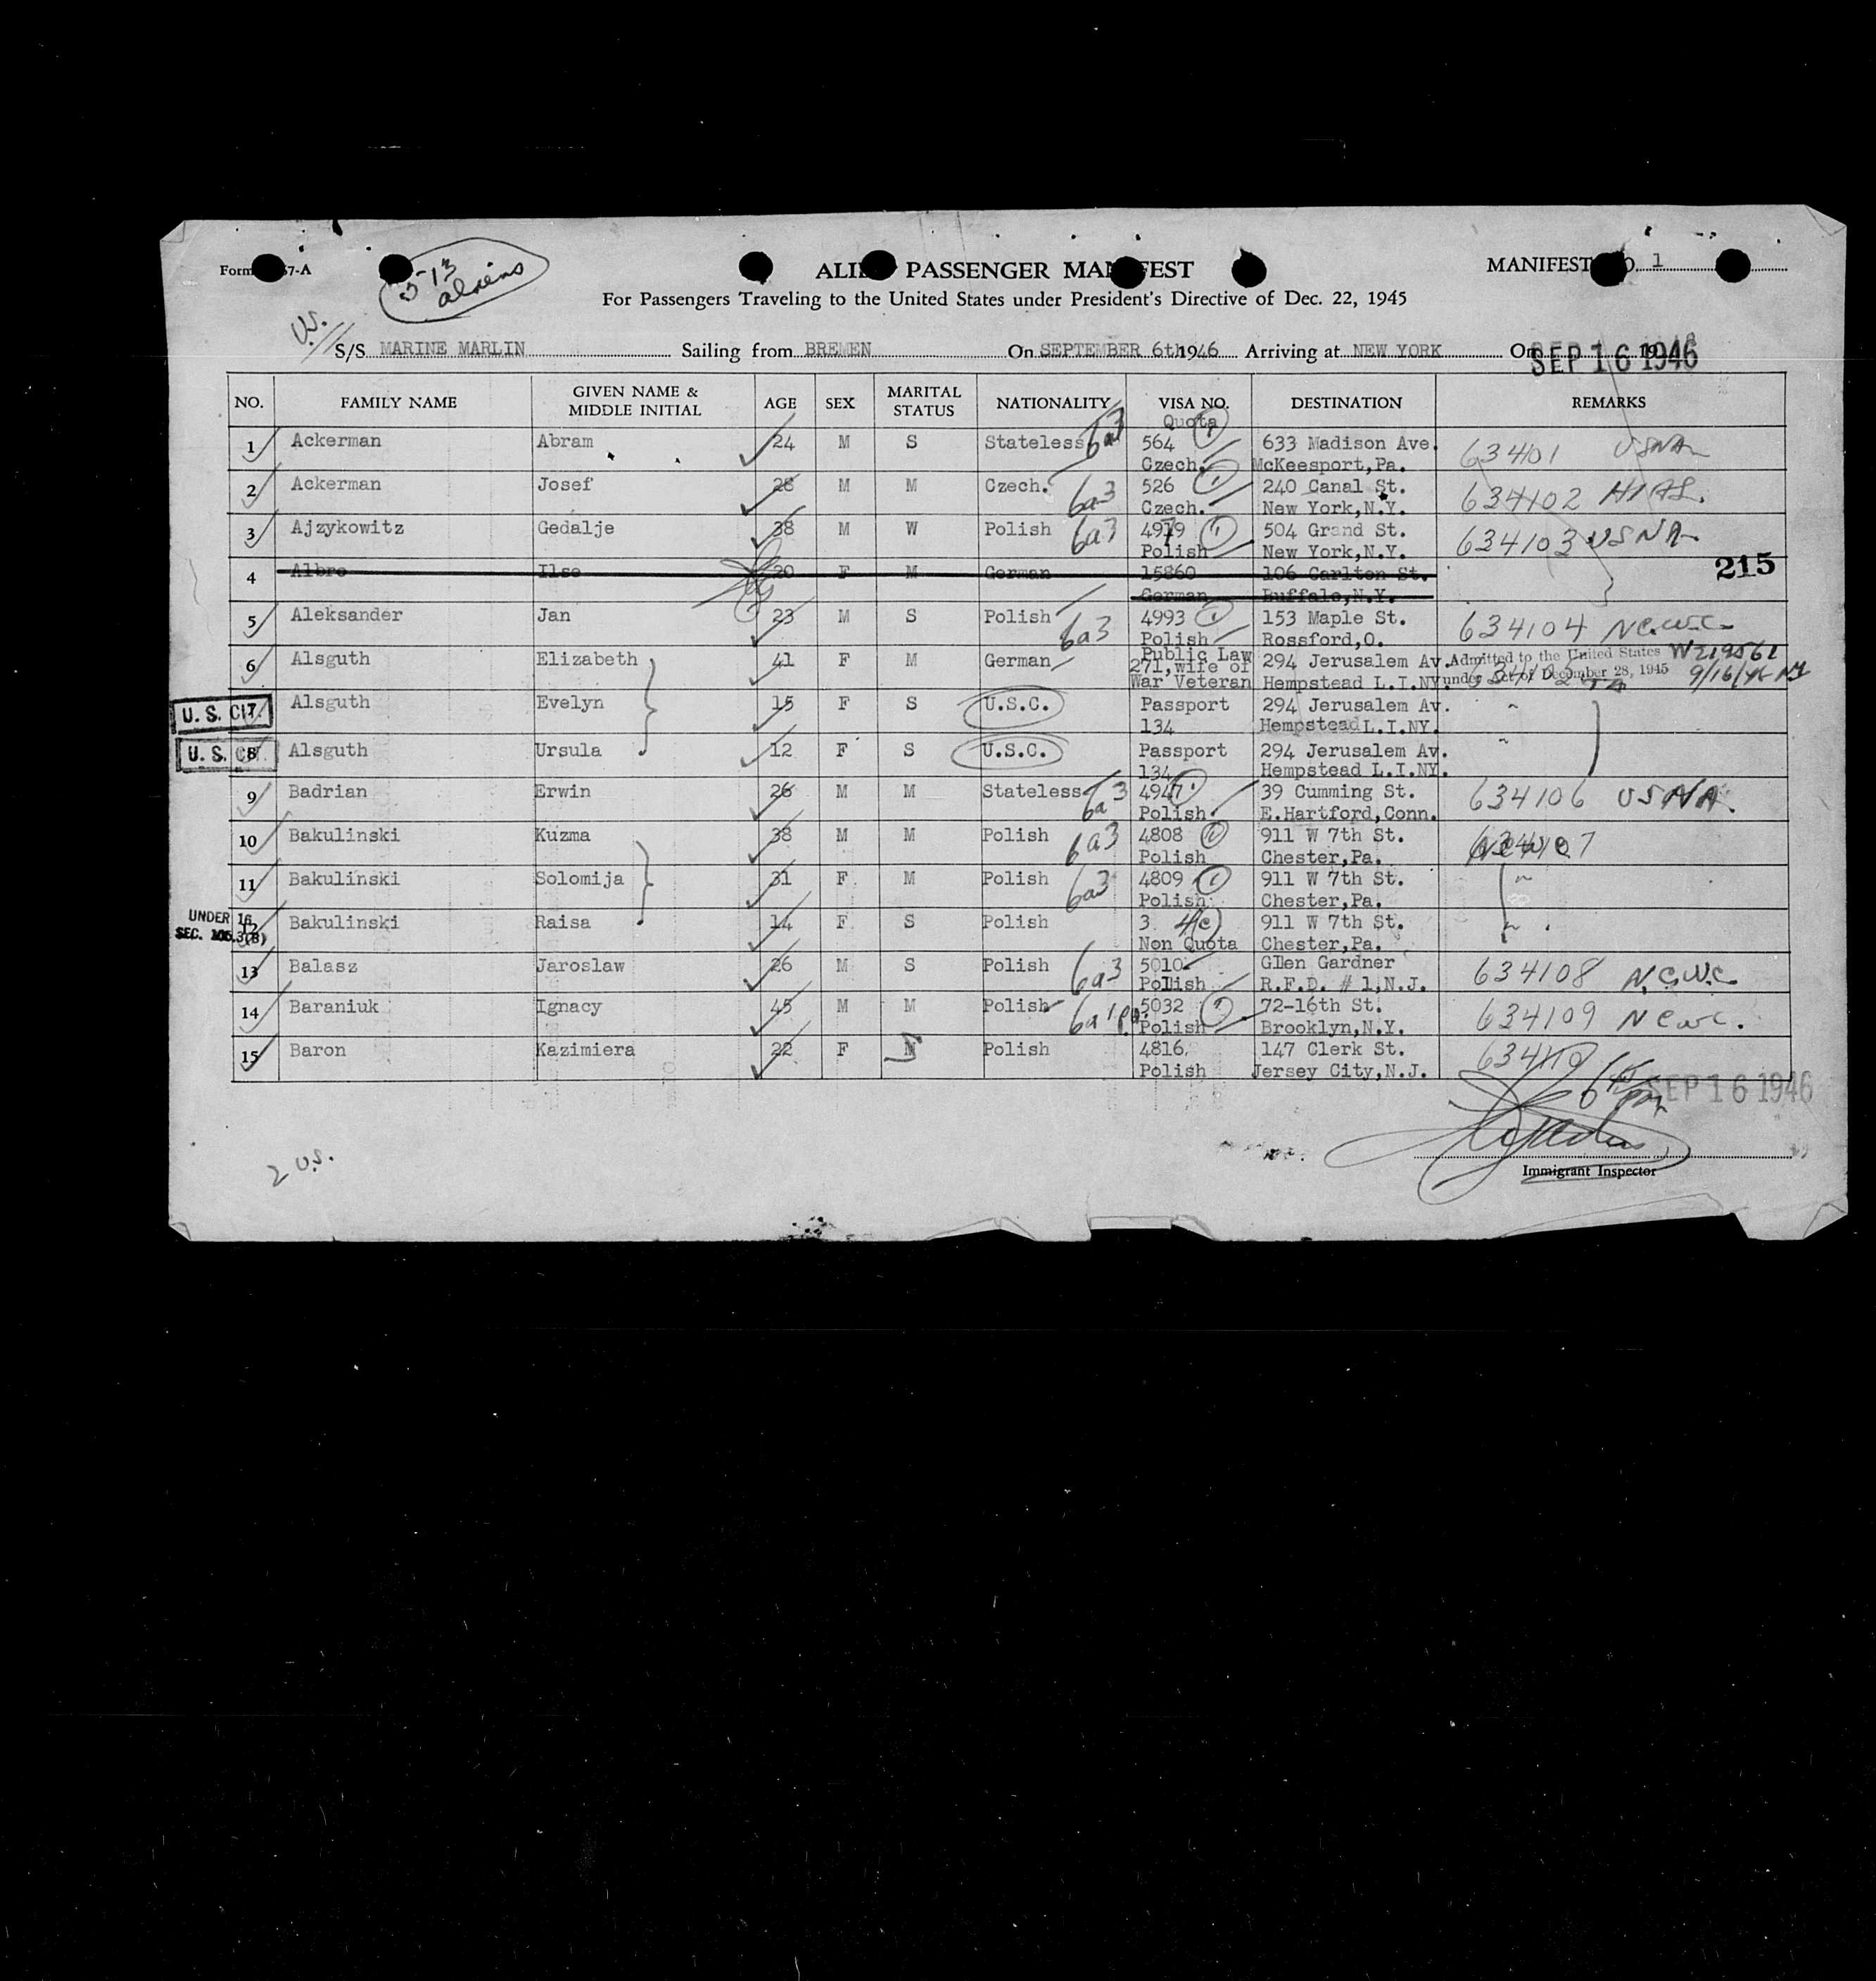 Form 57-A
513
aliens
ALIEN PASSENGER MANIFEST
MANIFEST NO. 1
For Passengers Traveling to the United States under President's Directive of Dec. 22, 1945
U.S.
S/S MARINE MARLIN Sailing from BREMEN On SEPTEMBER 6th 1946 Arriving at NEW YORK On SEP 16 1946
NO. FAMILY NAME GIVEN NAME & MIDDLE INITIAL AGE SEX MARITAL STATUS NATIONALITY VISA NO. DESTINATION REMARKS
Quota
1 Ackerman Abram 24 M S Stateless 6a3 564 633 Madison Ave. 63401 USNA
Czech. McKeesport,Pa.
2 Ackerman Josef 28 M M Czech. 6a3 526 240 Canal St. 634102 HIAS.
Czech. New York,N.Y.
3 Ajzykowitz Gedalje 38 M W Polish 6a3 4979 504 Grand St. 634103 USNA
Polish New York,N.Y.
215
4 Albro Ilse 20 F M German 15860 106 Carlton St.
German Buffalo,N.Y.
5 Aleksander Jan 23 M S Polish 6a3 4993 153 Maple St. 634104 NCWC
Polish Rossford,O.
6 Alsguth Elizabeth 41 F M German Public Law 271,wife of War Veteran 294 Jerusalem Av. Hempstead L.I.NY.
Admitted to the United States W219561
under Act of December 28, 1945 9/16/46 NY
U. S. CIT.
7 Alsguth Evelyn 15 F S U.S.C. Passport 294 Jerusalem Av.
134 Hempstead L.I.NY.
U. S. CIT.
8 Alsguth Ursula 12 F S U.S.C. Passport 294 Jerusalem Av.
134 Hempstead L.I.NY.
9 Badrian Erwin 26 M M Stateless 6a3 4947 39 Cumming St. 634106 USNA.
Polish E.Hartford,Conn.
10 Bakulinski Kuzma 38 M M Polish 6a3 4808 911 W 7th St. 634107
Polish Chester,Pa.
11 Bakulinski Solomija 31 F M Polish 6a3 4809 911 W 7th St.
Polish Chester,Pa.
UNDER 16
12 Bakulinski Raisa 14 F S Polish 3 4(c) 911 W 7th St.
Non Quota Chester,Pa.
13 Balasz Jaroslaw 26 M S Polish 6a3 5010 Glen Gardner 634108 N.C.W.C
Polish R.F.D. # 1,N.J.
14 Baraniuk Ignacy 45 M M Polish 5032 72-16th St. 634109 NCWC.
Polish Brooklyn,N.Y.
15 Baron Kazimiera 22 F S Polish 4816 147 Clerk St. 634110
Polish Jersey City,N.J.
SEP 16 1946
2 U.S.
Immigrant Inspector